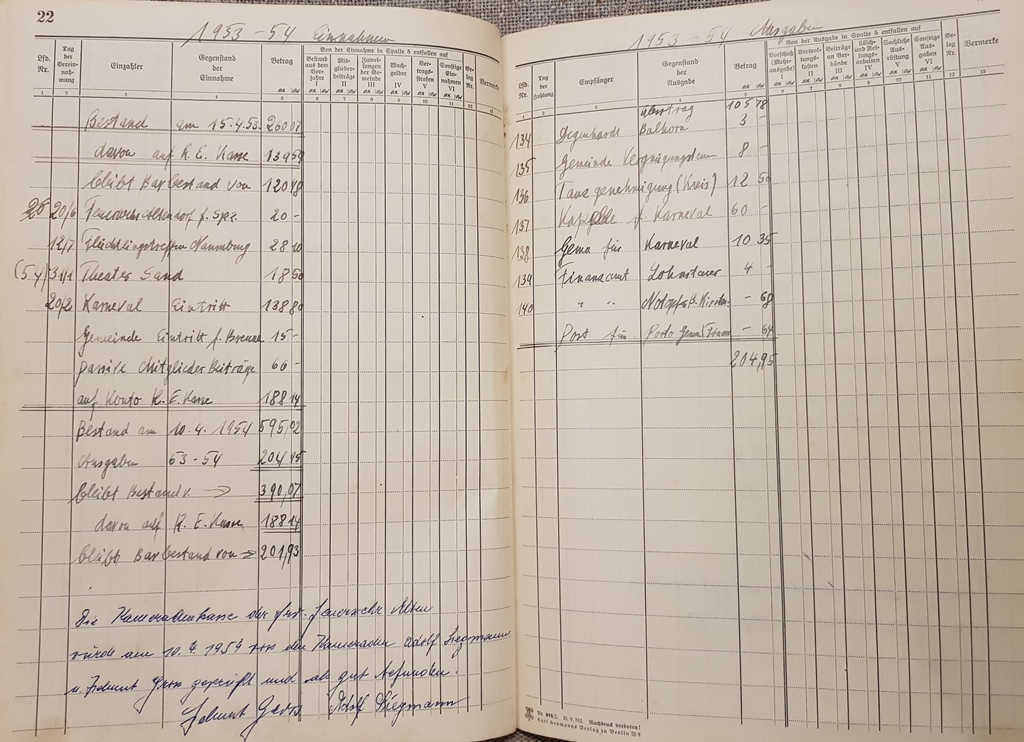 22
1953-54 Einnahmen
Lfd. Nr.
Tag der Vereinnahmung
Einzahler
Gegenstand der Einnahme
Betrag
Von der Einnahme in Spalte 5 entfallen auf
Bestand aus dem Vorjahre I
Mitgliederbeiträge II
Zuwendungen der Gemeinde III
Wachgelder IV
Vertragsstrafen V
Sonstige Einnahmen VI
Beleg Nr.
Vermerke
Bestand am 15.4.53. 260 07
davon auf K. E. Kasse 139 59
bleibt Barbestand von 120 48
20/6 f. Spr. 20 -
12/7 Flüchlingstreffen Naumburg 28 10
(54) 31/1 Theater Sand 18 50
20/2 Karneval Eintritt 138 80
Gemeinde Eintritt f. 15 -
passive Mitglieder Beiträge 66 -
auf Konto K. E. Kasse 188 14
Bestand am 10.4. 1954 595,02
Ausgaben 53-54 204 95
bleibt Bestand v. → 390,07
davon auf K. E. Kasse 188 14
bleibt Barbestand von → 201,93
Die Kameradenkasse der frw. Feuerwehr Alten
wurde am 10.4.1954 von den Kameraden Adolf Siegmann
u. Helmut Gerss geprüft und als gut befunden.
Helmut Gerss Adolf Siegmann
1953-54 Ausgaben
Lfd. Nr.
Tag der Zahlung
Empfänger
Gegenstand der Ausgabe
Betrag
Von der Ausgabe in Spalte 5 entfallen auf
Vorschuß (Mehrausgabe) I
Verwaltungskosten II
Beiträge an Verbände III
Lösch- und Rettungsarbeiten IV
Sachliche Ausrüstung V
Sonstige Ausgaben VI
Beleg Nr.
Vermerke
Übertrag 105 78
134 Degenhardt Balhorn 3 -
135 Gemeinde Vergnügungssteuer 8 -
136 Tanzgenehmigung (Kreis) 12 50
137 Kapelle f. Karneval 60 -
138 Gema für Karneval 10 35
139 Finanzamt Lohnsteuer 4 -
140 " " Notopf B. Kirchen - 68
Post für Porto Gema/Finan - 64
204,95
Carl Heymanns Verlag zu Berlin W8
Nachdruck verboten!